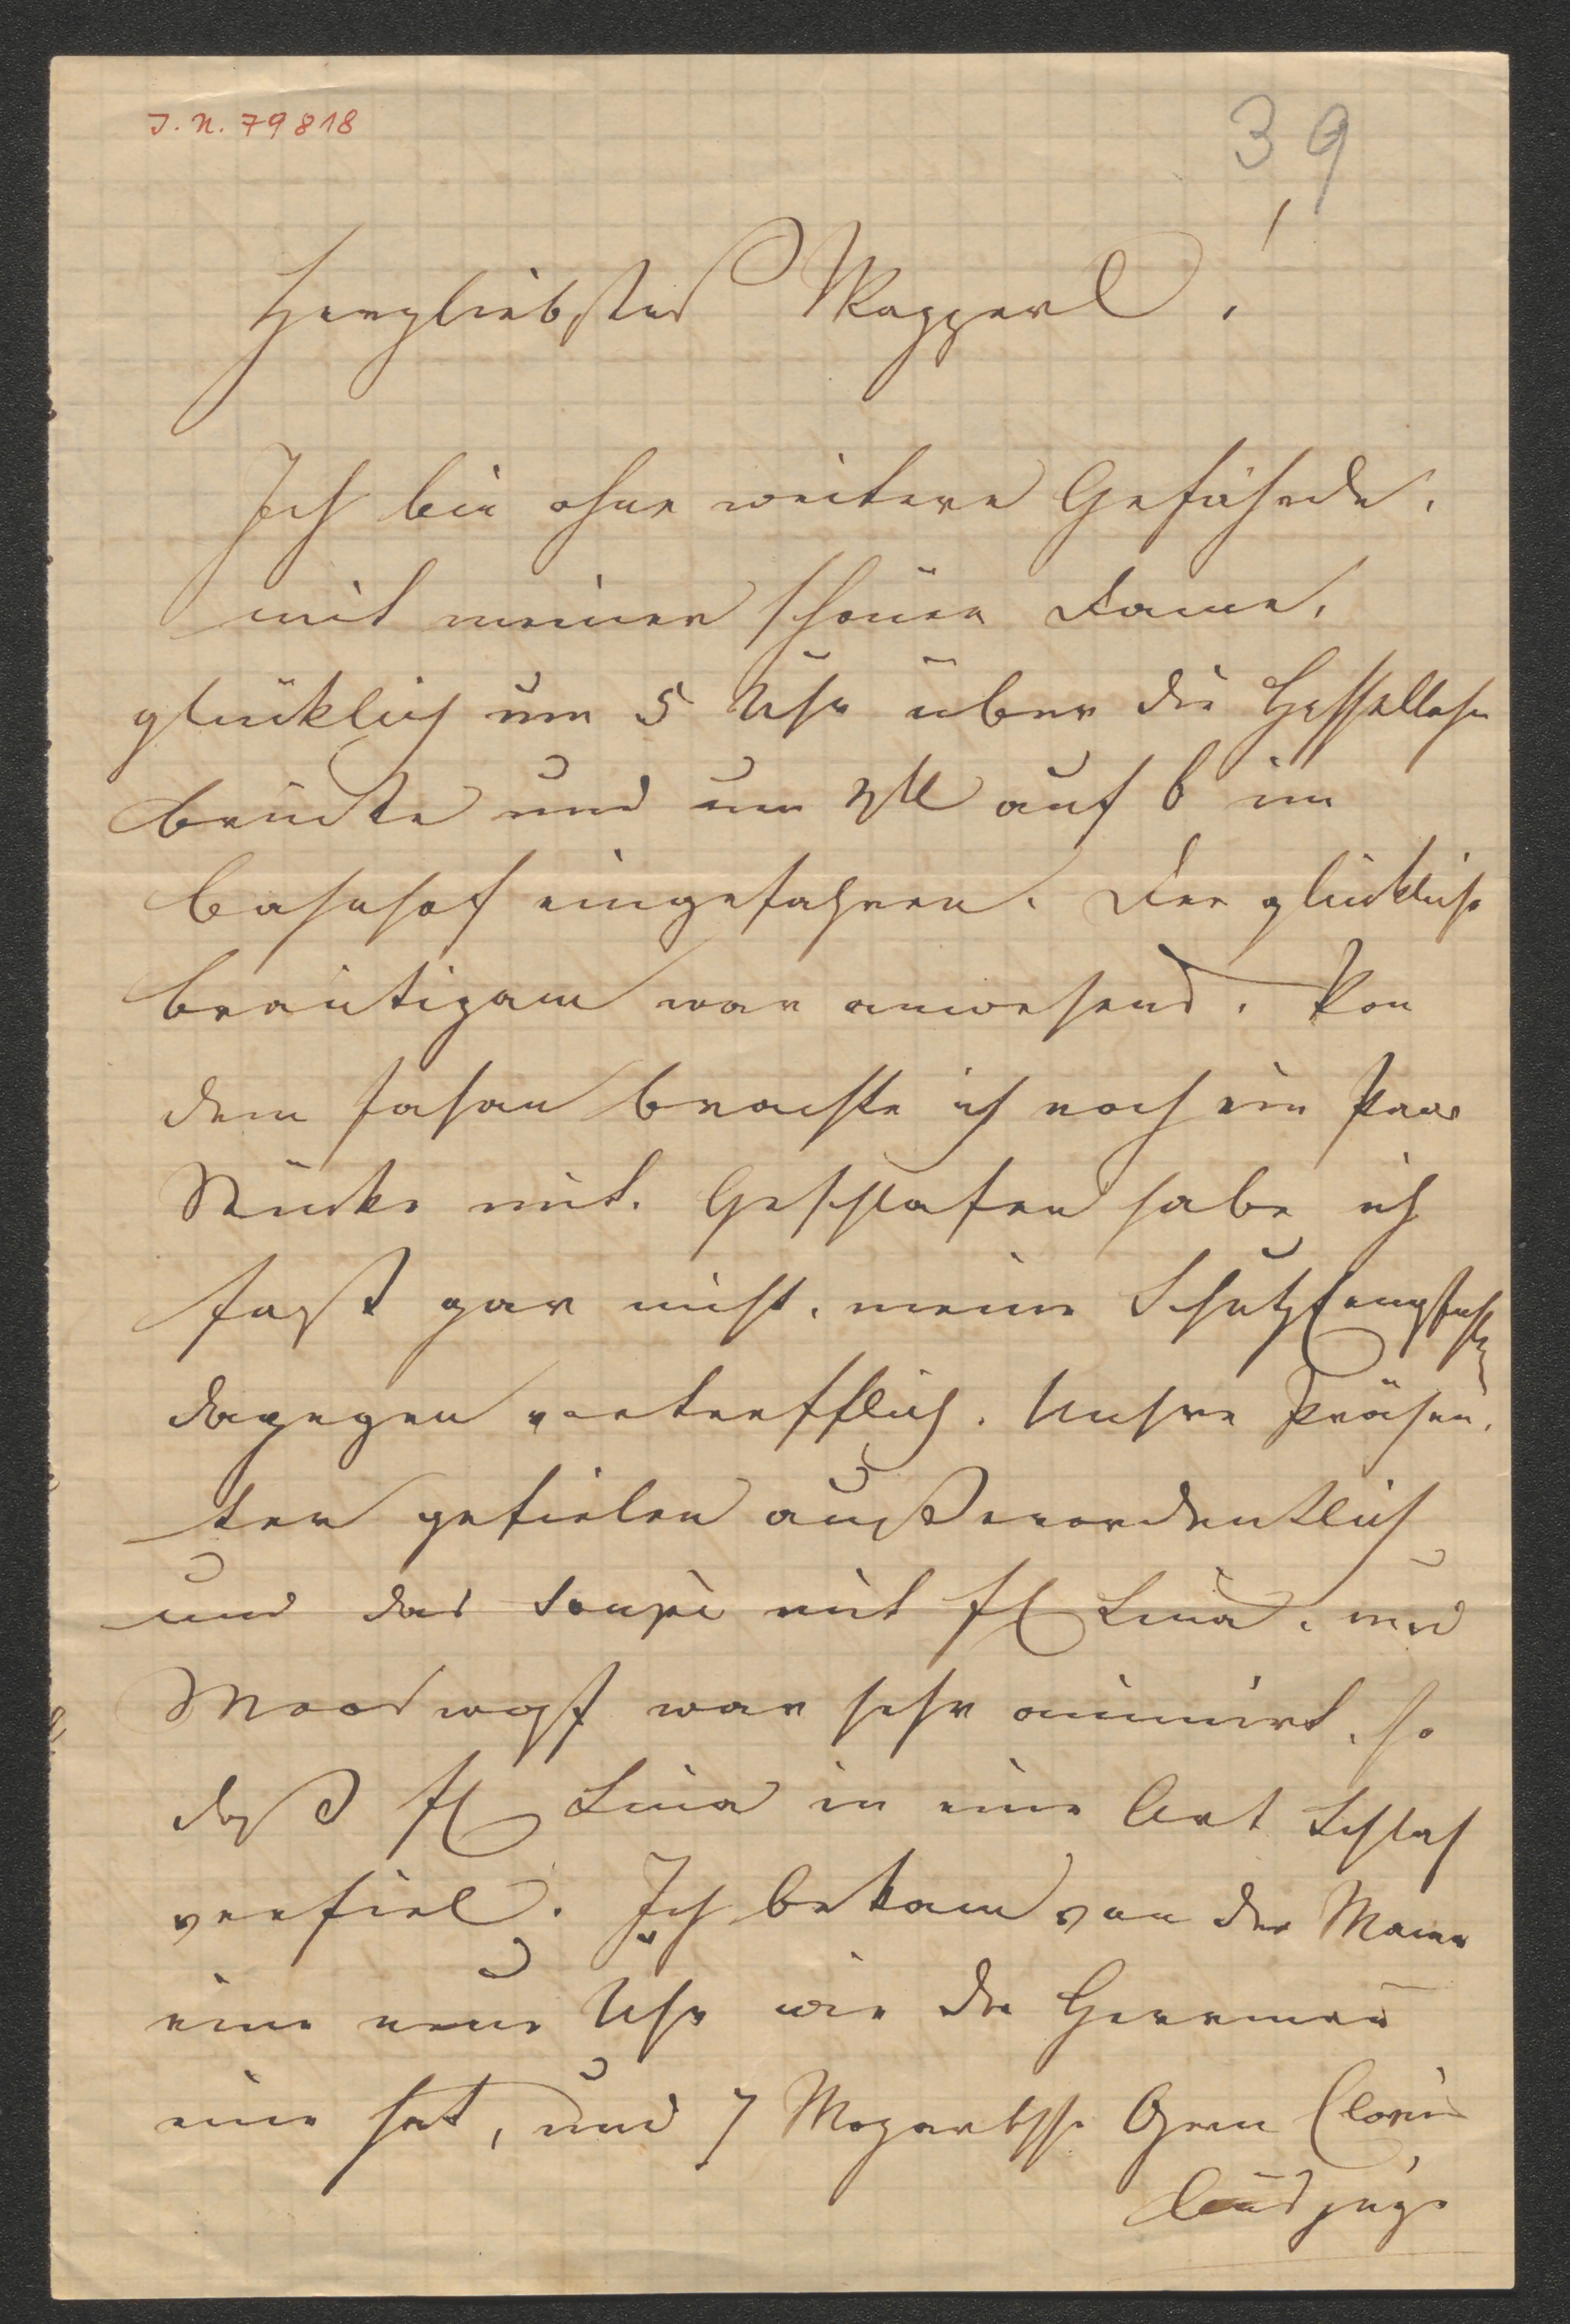 J. N. 79818
39
Herzliebster Mazzerl!
Ich bin ohne weitere Gefährde,
mit meiner schönen Dame,
glücklich um 5 Uhr über die Hesselloher
brücke und um ¾ auf 6 im
Bahnhof eingefahren. Der glückliche
Bräutigam war anwesend. Von
dem Fasan brachte ich noch ein Paar
Stücke mit. Geschlafen habe ich
fast gar nicht, meine
dagegen vortrefflich. Unsre Präsen,
ten gefielen außerordentlich
und das Soupé mit Frl Lina, und
war sehr animirt, so
daß Frl Lina in eine Art Schlaf
verfiel. Ich bekam von der Mama
eine neue Uhr wie die Hermin
eine hat, und 7 Mozartsche Opern Clavier
Auszüge